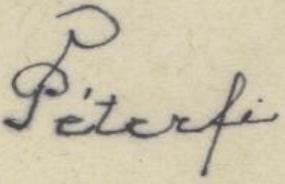 Péterfi